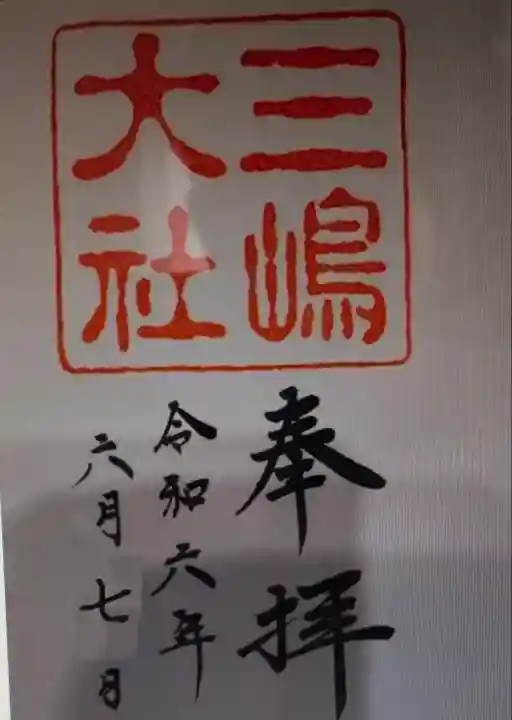 三嶋
大社
奉拝
令和六年
六月七日